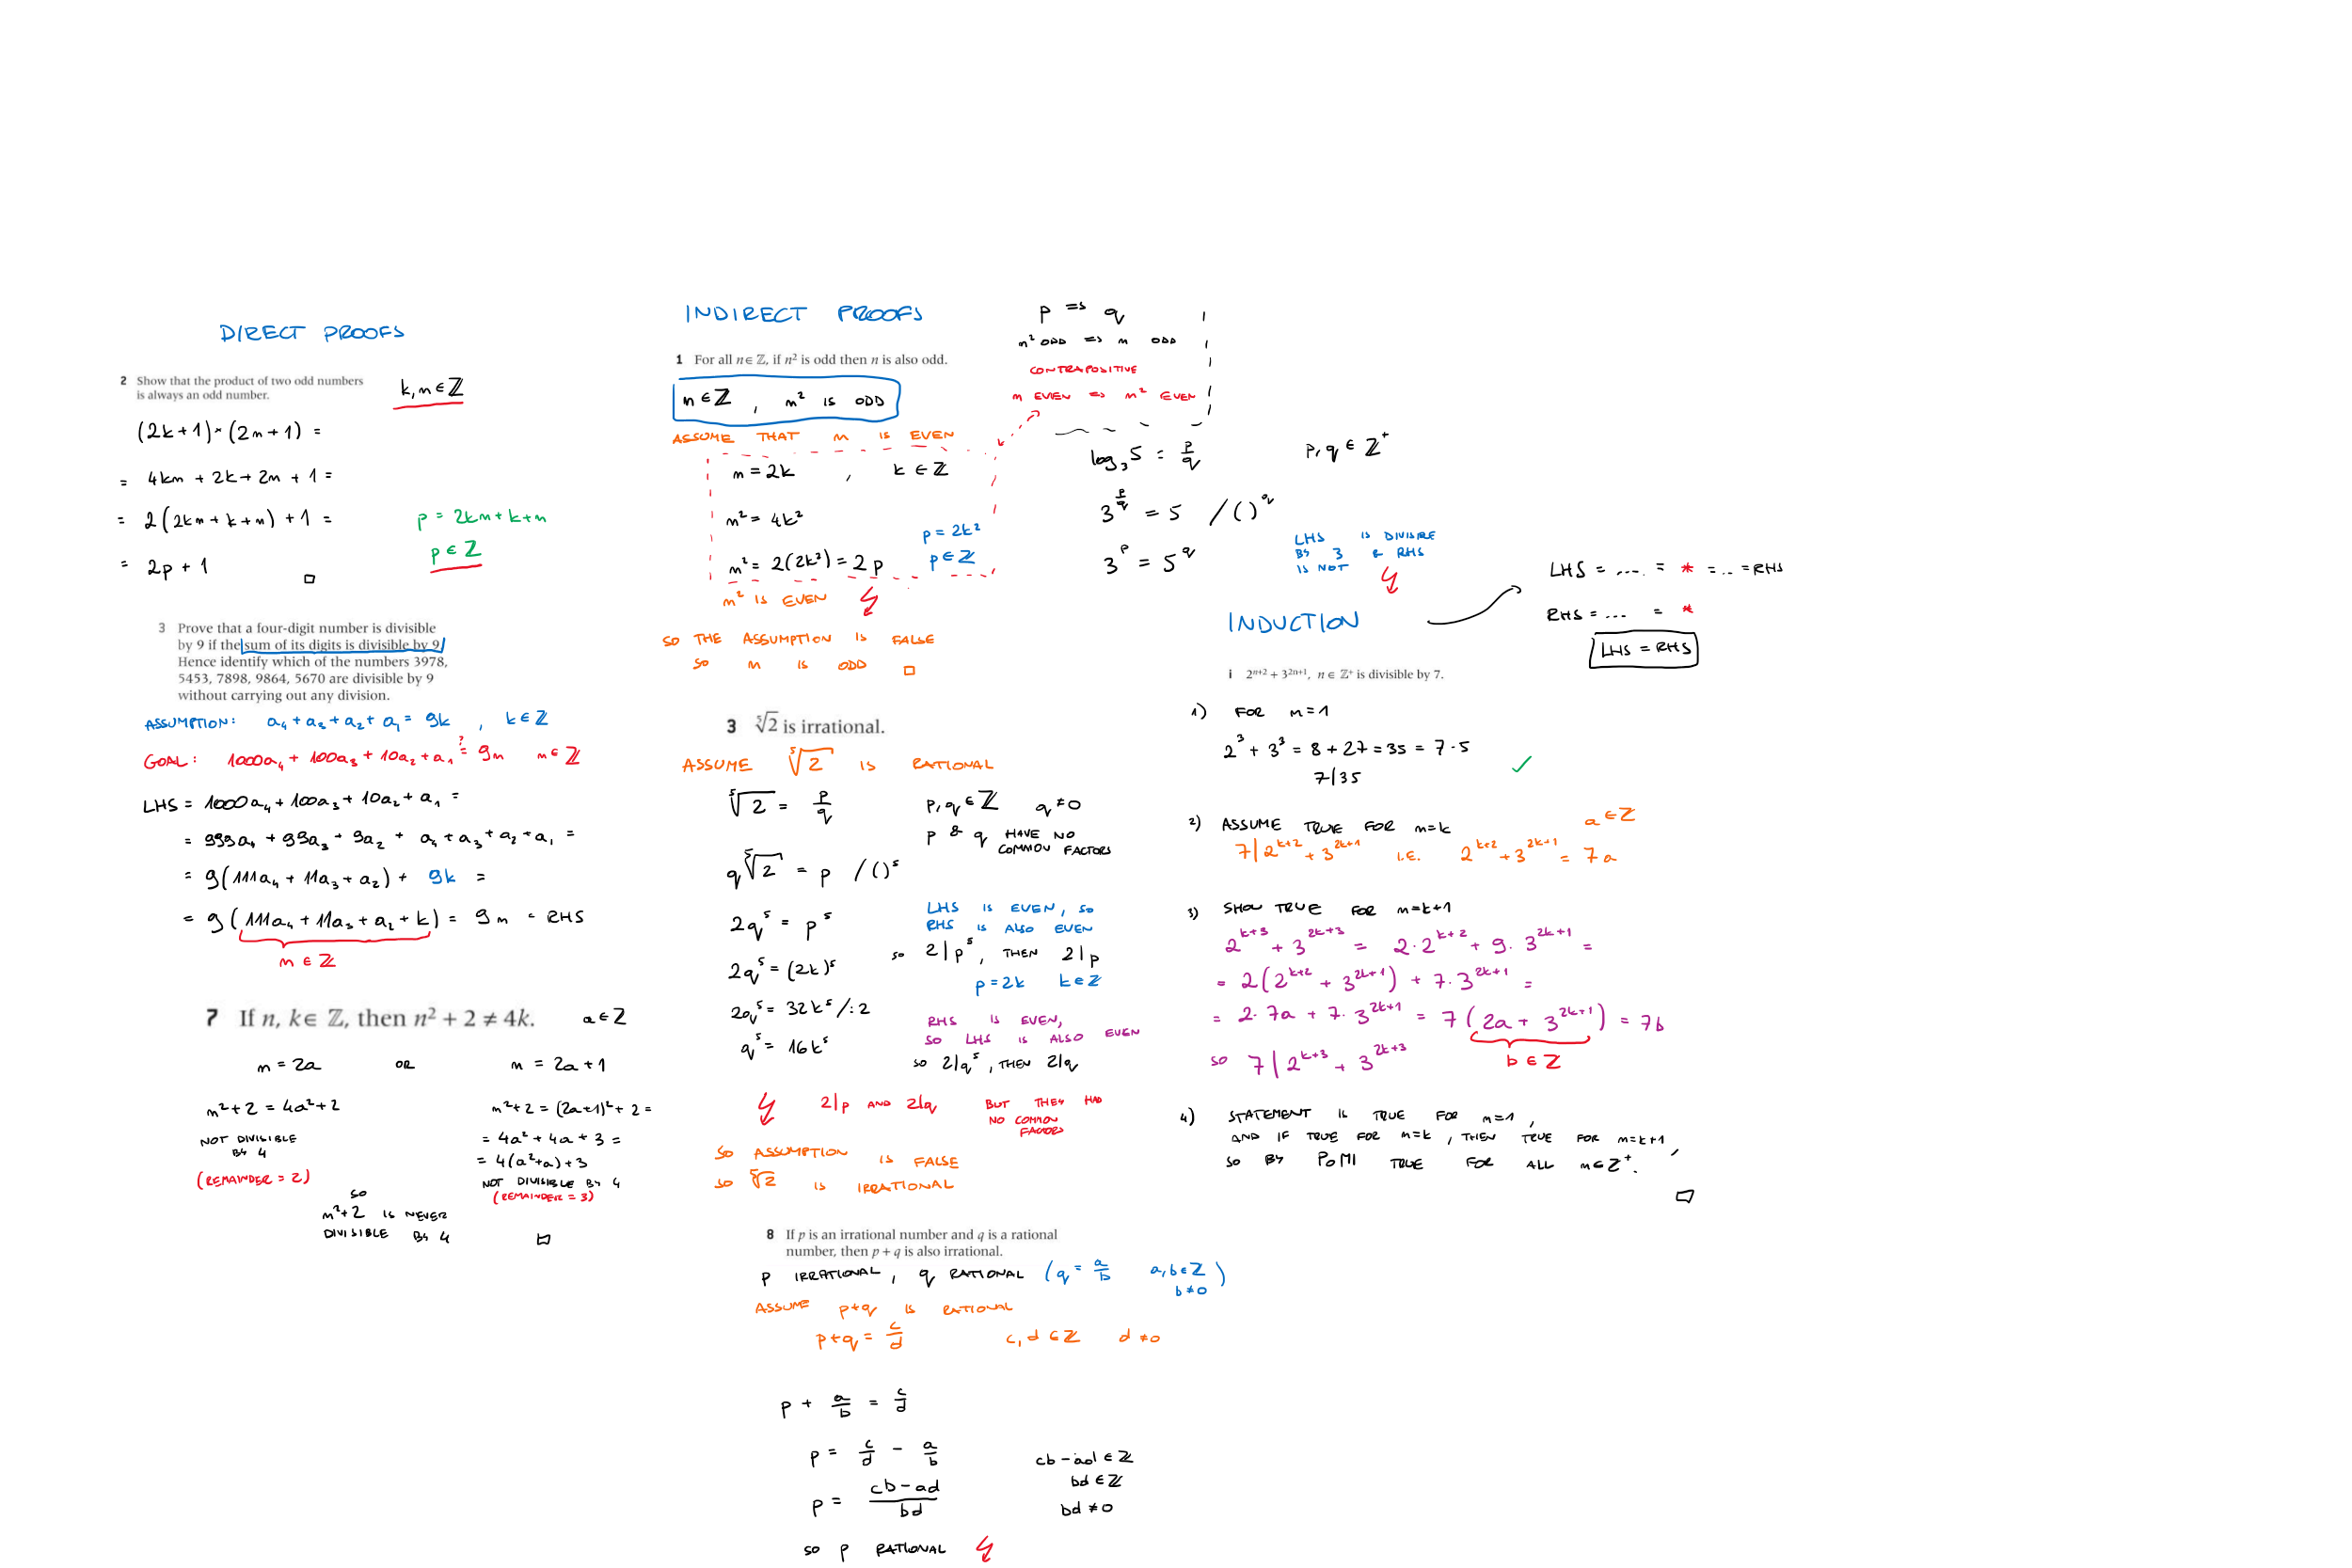 DIRECT PROOFS
2 Show that the product of two odd numbers
is always an odd number.
k, n ∈ ℤ
(2k+1)·(2n+1) =
= 4kn + 2k + 2n + 1 =
= 2(2kn + k + n) + 1 =
p = 2kn + k + n
= 2p + 1
p ∈ ℤ
□
3 Prove that a four-digit number is divisible
by 9 if the sum of its digits is divisible by 9.
Hence identify which of the numbers 3978,
5453, 7898, 9864, 5670 are divisible by 9
without carrying out any division.
ASSUMPTION: a₄ + a₃ + a₂ + a₁ = 9k , k ∈ ℤ
GOAL: 1000a₄ + 100a₃ + 10a₂ + a₁ ≟ 9m m ∈ ℤ
LHS = 1000a₄ + 100a₃ + 10a₂ + a₁ =
= 999a₄ + 99a₃ + 9a₂ + a₄ + a₃ + a₂ + a₁ =
= 9(111a₄ + 11a₃ + a₂) + 9k =
= 9(111a₄ + 11a₃ + a₂ + k) = 9m = RHS
m ∈ ℤ
7 If n, k ∈ ℤ, then n² + 2 ≠ 4k.
a ∈ ℤ
n = 2a OR n = 2a + 1
n² + 2 = 4a² + 2
NOT DIVISIBLE
BY 4
(REMAINDER = 2)
n² + 2 = (2a+1)² + 2 =
= 4a² + 4a + 3 =
= 4(a² + a) + 3
NOT DIVISIBLE BY 4
(REMAINDER = 3)
SO
n² + 2 IS NEVER
DIVISIBLE BY 4
□
INDIRECT PROOFS
1 For all n ∈ ℤ, if n² is odd then n is also odd.
n ∈ ℤ , n² IS ODD
ASSUME THAT n IS EVEN
n = 2k , k ∈ ℤ
n² = 4k²
p = 2k²
n² = 2(2k²) = 2p
p ∈ ℤ
n² IS EVEN
SO THE ASSUMPTION IS FALSE
SO n IS ODD □
p ⇒ q
n² ODD ⇒ n ODD
CONTRAPOSITIVE
n EVEN ⇒ n² EVEN
3 ⁵√2 is irrational.
ASSUME ⁵√2 IS RATIONAL
⁵√2 = p/q
p, q ∈ ℤ q ≠ 0
p & q HAVE NO
COMMON FACTORS
q ⁵√2 = p /()⁵
2q⁵ = p⁵
LHS IS EVEN, SO
RHS IS ALSO EVEN
SO 2|p⁵, THEN 2|p
2q⁵ = (2k)⁵
p = 2k k ∈ ℤ
2q⁵ = 32k⁵ /:2
q⁵ = 16k⁵
RHS IS EVEN,
SO LHS IS ALSO EVEN
SO 2|q⁵, THEN 2|q
2|p AND 2|q
BUT THEY HAD
NO COMMON
FACTORS
SO ASSUMPTION IS FALSE
SO ⁵√2 IS IRRATIONAL
8 If p is an irrational number and q is a rational
number, then p + q is also irrational.
p IRRATIONAL, q RATIONAL (q = a/b a, b ∈ ℤ
b ≠ 0)
ASSUME p+q IS RATIONAL
p+q = c/d c, d ∈ ℤ d ≠ 0
p + a/b = c/d
p = c/d − a/b
p = (cb − ad)/bd
cb − ad ∈ ℤ
bd ∈ ℤ
bd ≠ 0
SO p RATIONAL
log₃5 = p/q p, q ∈ ℤ⁺
3^(p/q) = 5 /()^q
3^p = 5^q
LHS IS DIVISIBE
BY 3 & RHS
IS NOT
INDUCTION
LHS = .... = * = .. = RHS
RHS = ... = *
LHS = RHS
i 2ⁿ⁺² + 3²ⁿ⁺¹, n ∈ ℤ⁺ is divisible by 7.
1) FOR n=1
2³ + 3³ = 8 + 27 = 35 = 7·5
7|35
✓
2) ASSUME TRUE FOR n=k
a ∈ ℤ
7|2^(k+2) + 3^(2k+1) I.E. 2^(k+2) + 3^(2k+1) = 7a
3) SHOW TRUE FOR n=k+1
2^(k+3) + 3^(2k+3) = 2·2^(k+2) + 9·3^(2k+1) =
= 2(2^(k+2) + 3^(2k+1)) + 7·3^(2k+1) =
= 2·7a + 7·3^(2k+1) = 7(2a + 3^(2k+1)) = 7b
b ∈ ℤ
SO 7|2^(k+3) + 3^(2k+3)
4) STATEMENT IS TRUE FOR n=1,
AND IF TRUE FOR n=k, THEN TRUE FOR n=k+1,
SO BY PoMI TRUE FOR ALL n ∈ ℤ⁺.
□